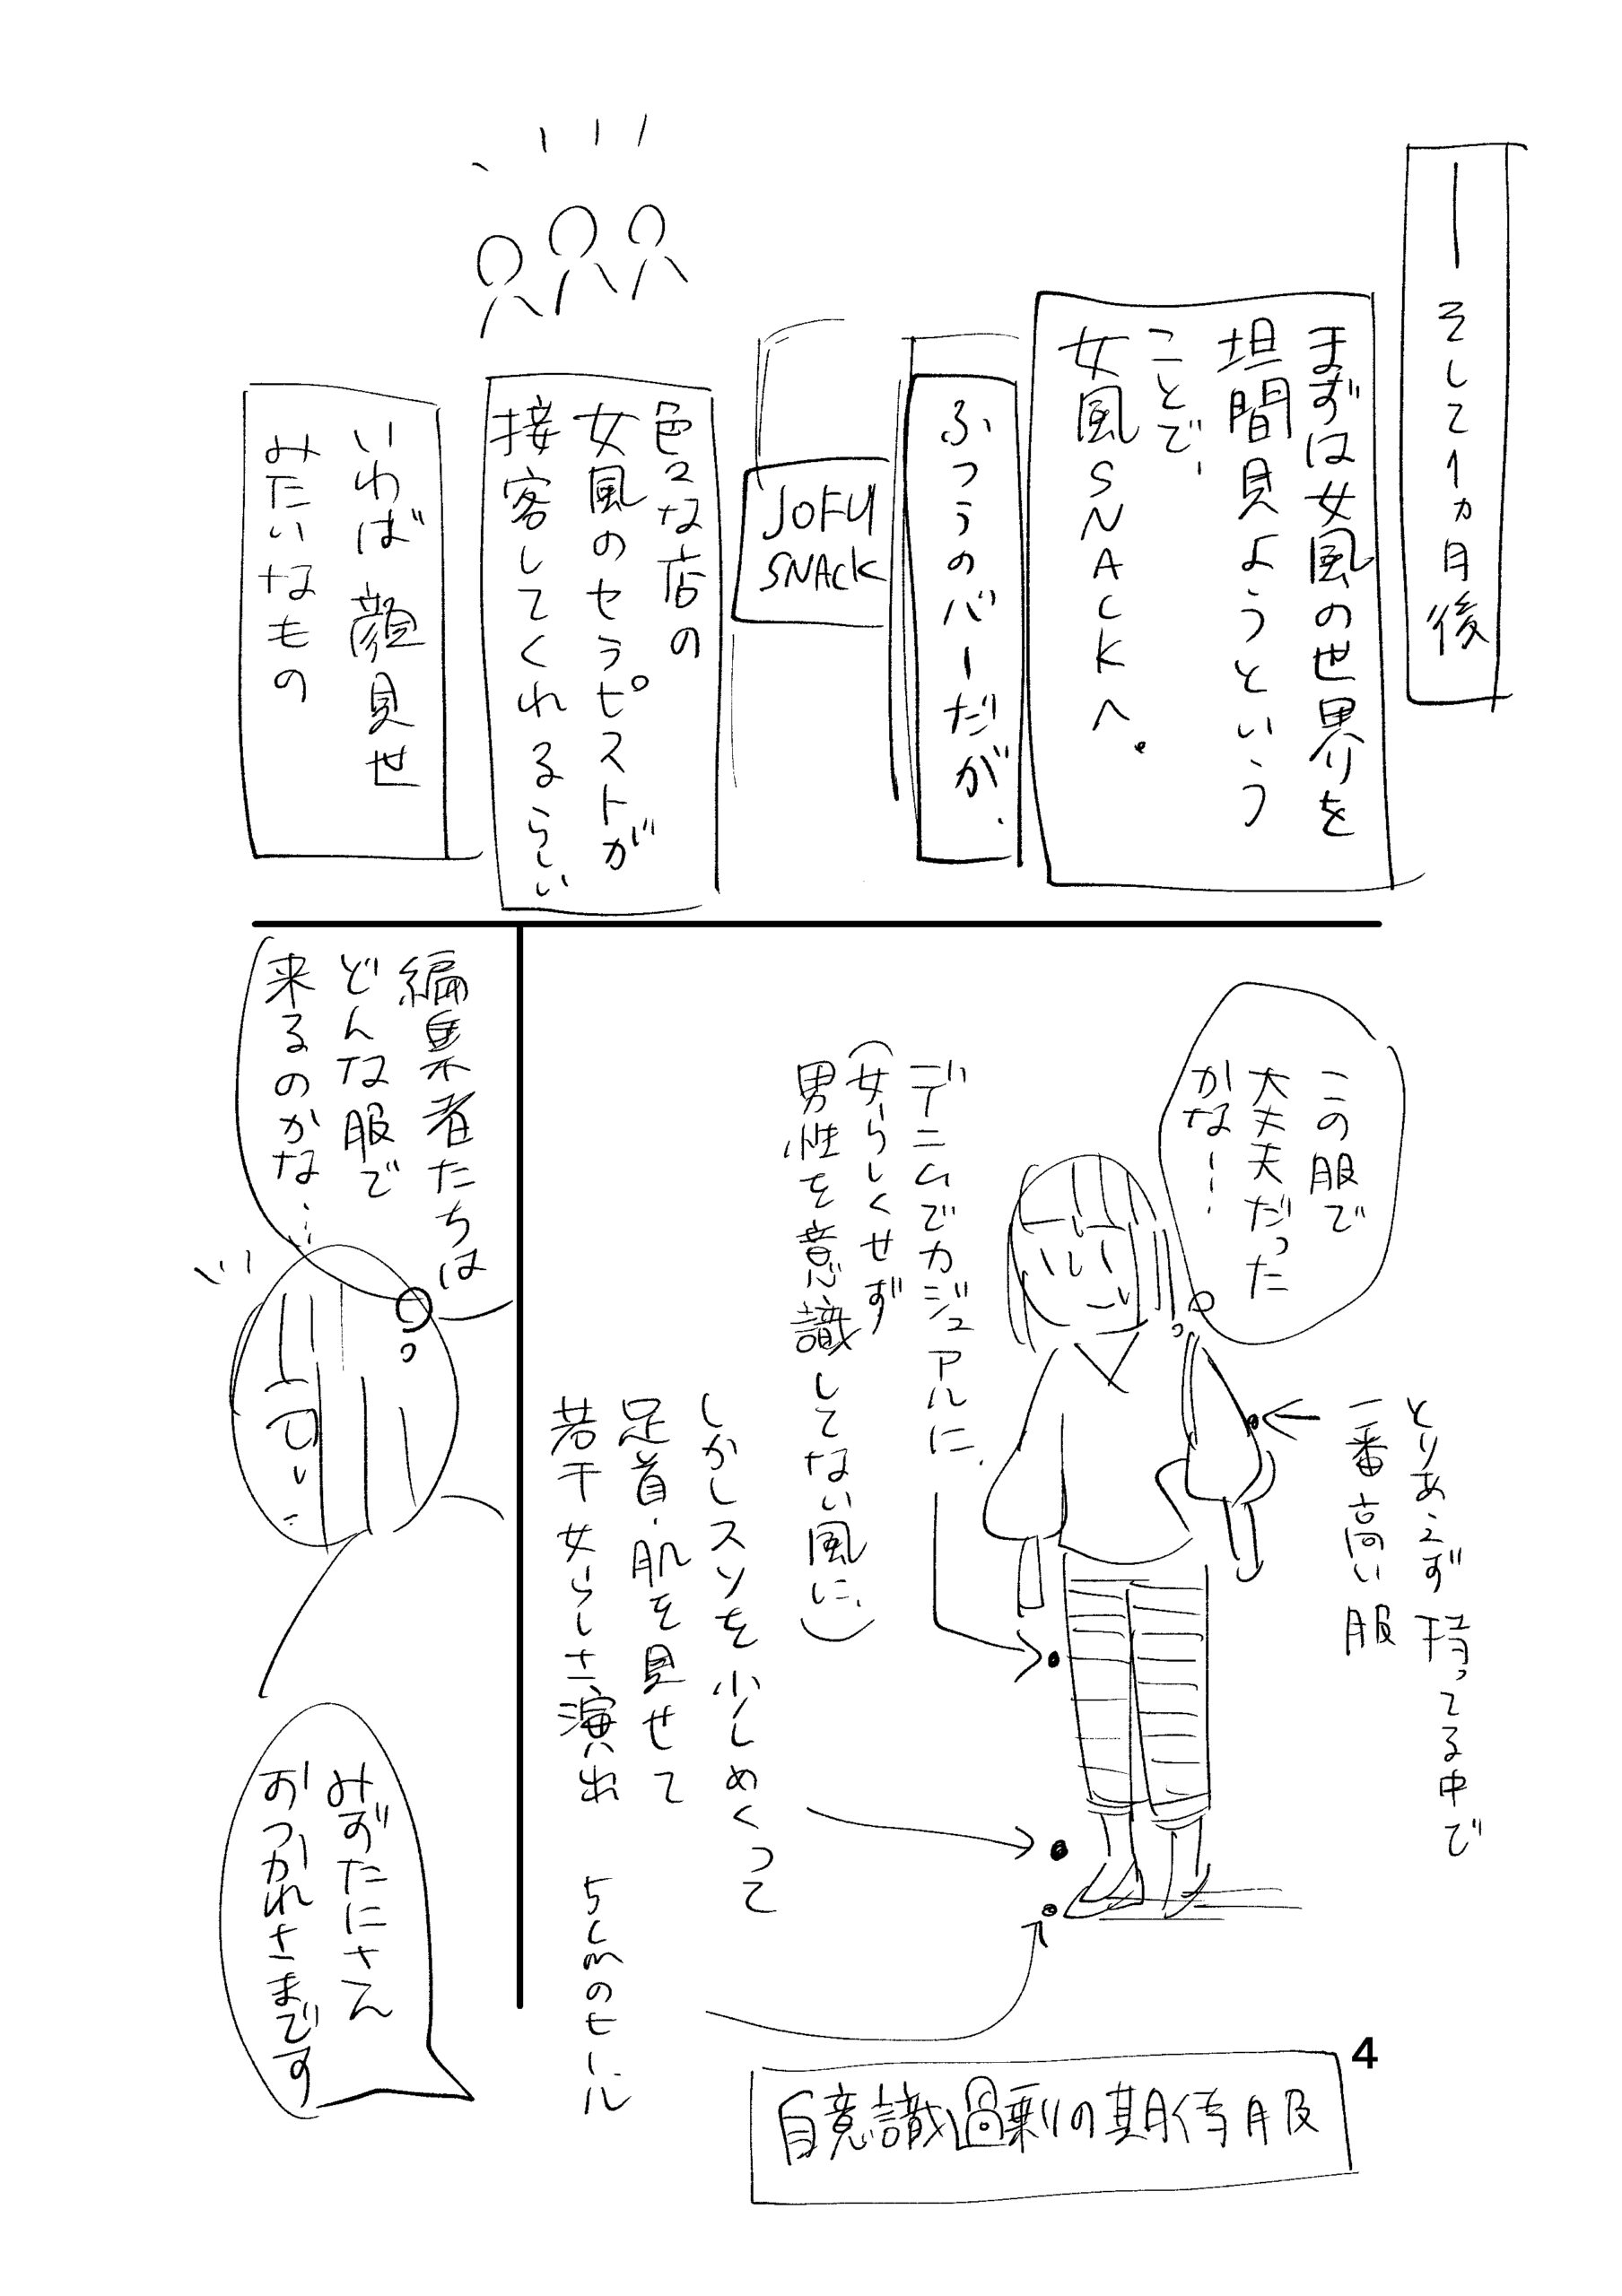 ―そして1ヵ月後
まずは女風の世界を
垣間見ようという
ことで、
女風SNACKへ。
ふつうのバーだが、
JOFU
SNACK
色々な店の
女風のセラピストが
接客してくれるらしい
いわば顔見世
みたいなもの
この服で
大丈夫だった
かな…
とりあえず持ってる中で
一番高い服
デニムでカジュアルに、
(女らしくせず
男性を意識してない風に、)
しかしスソを少しめくって
足首・肌を見せて
若干女らしさ演出
5cmのヒール
自意識過剰の期待服
編集者たちは
どんな服で
来るのかな…
みずたにさん
おつかれさまです
4